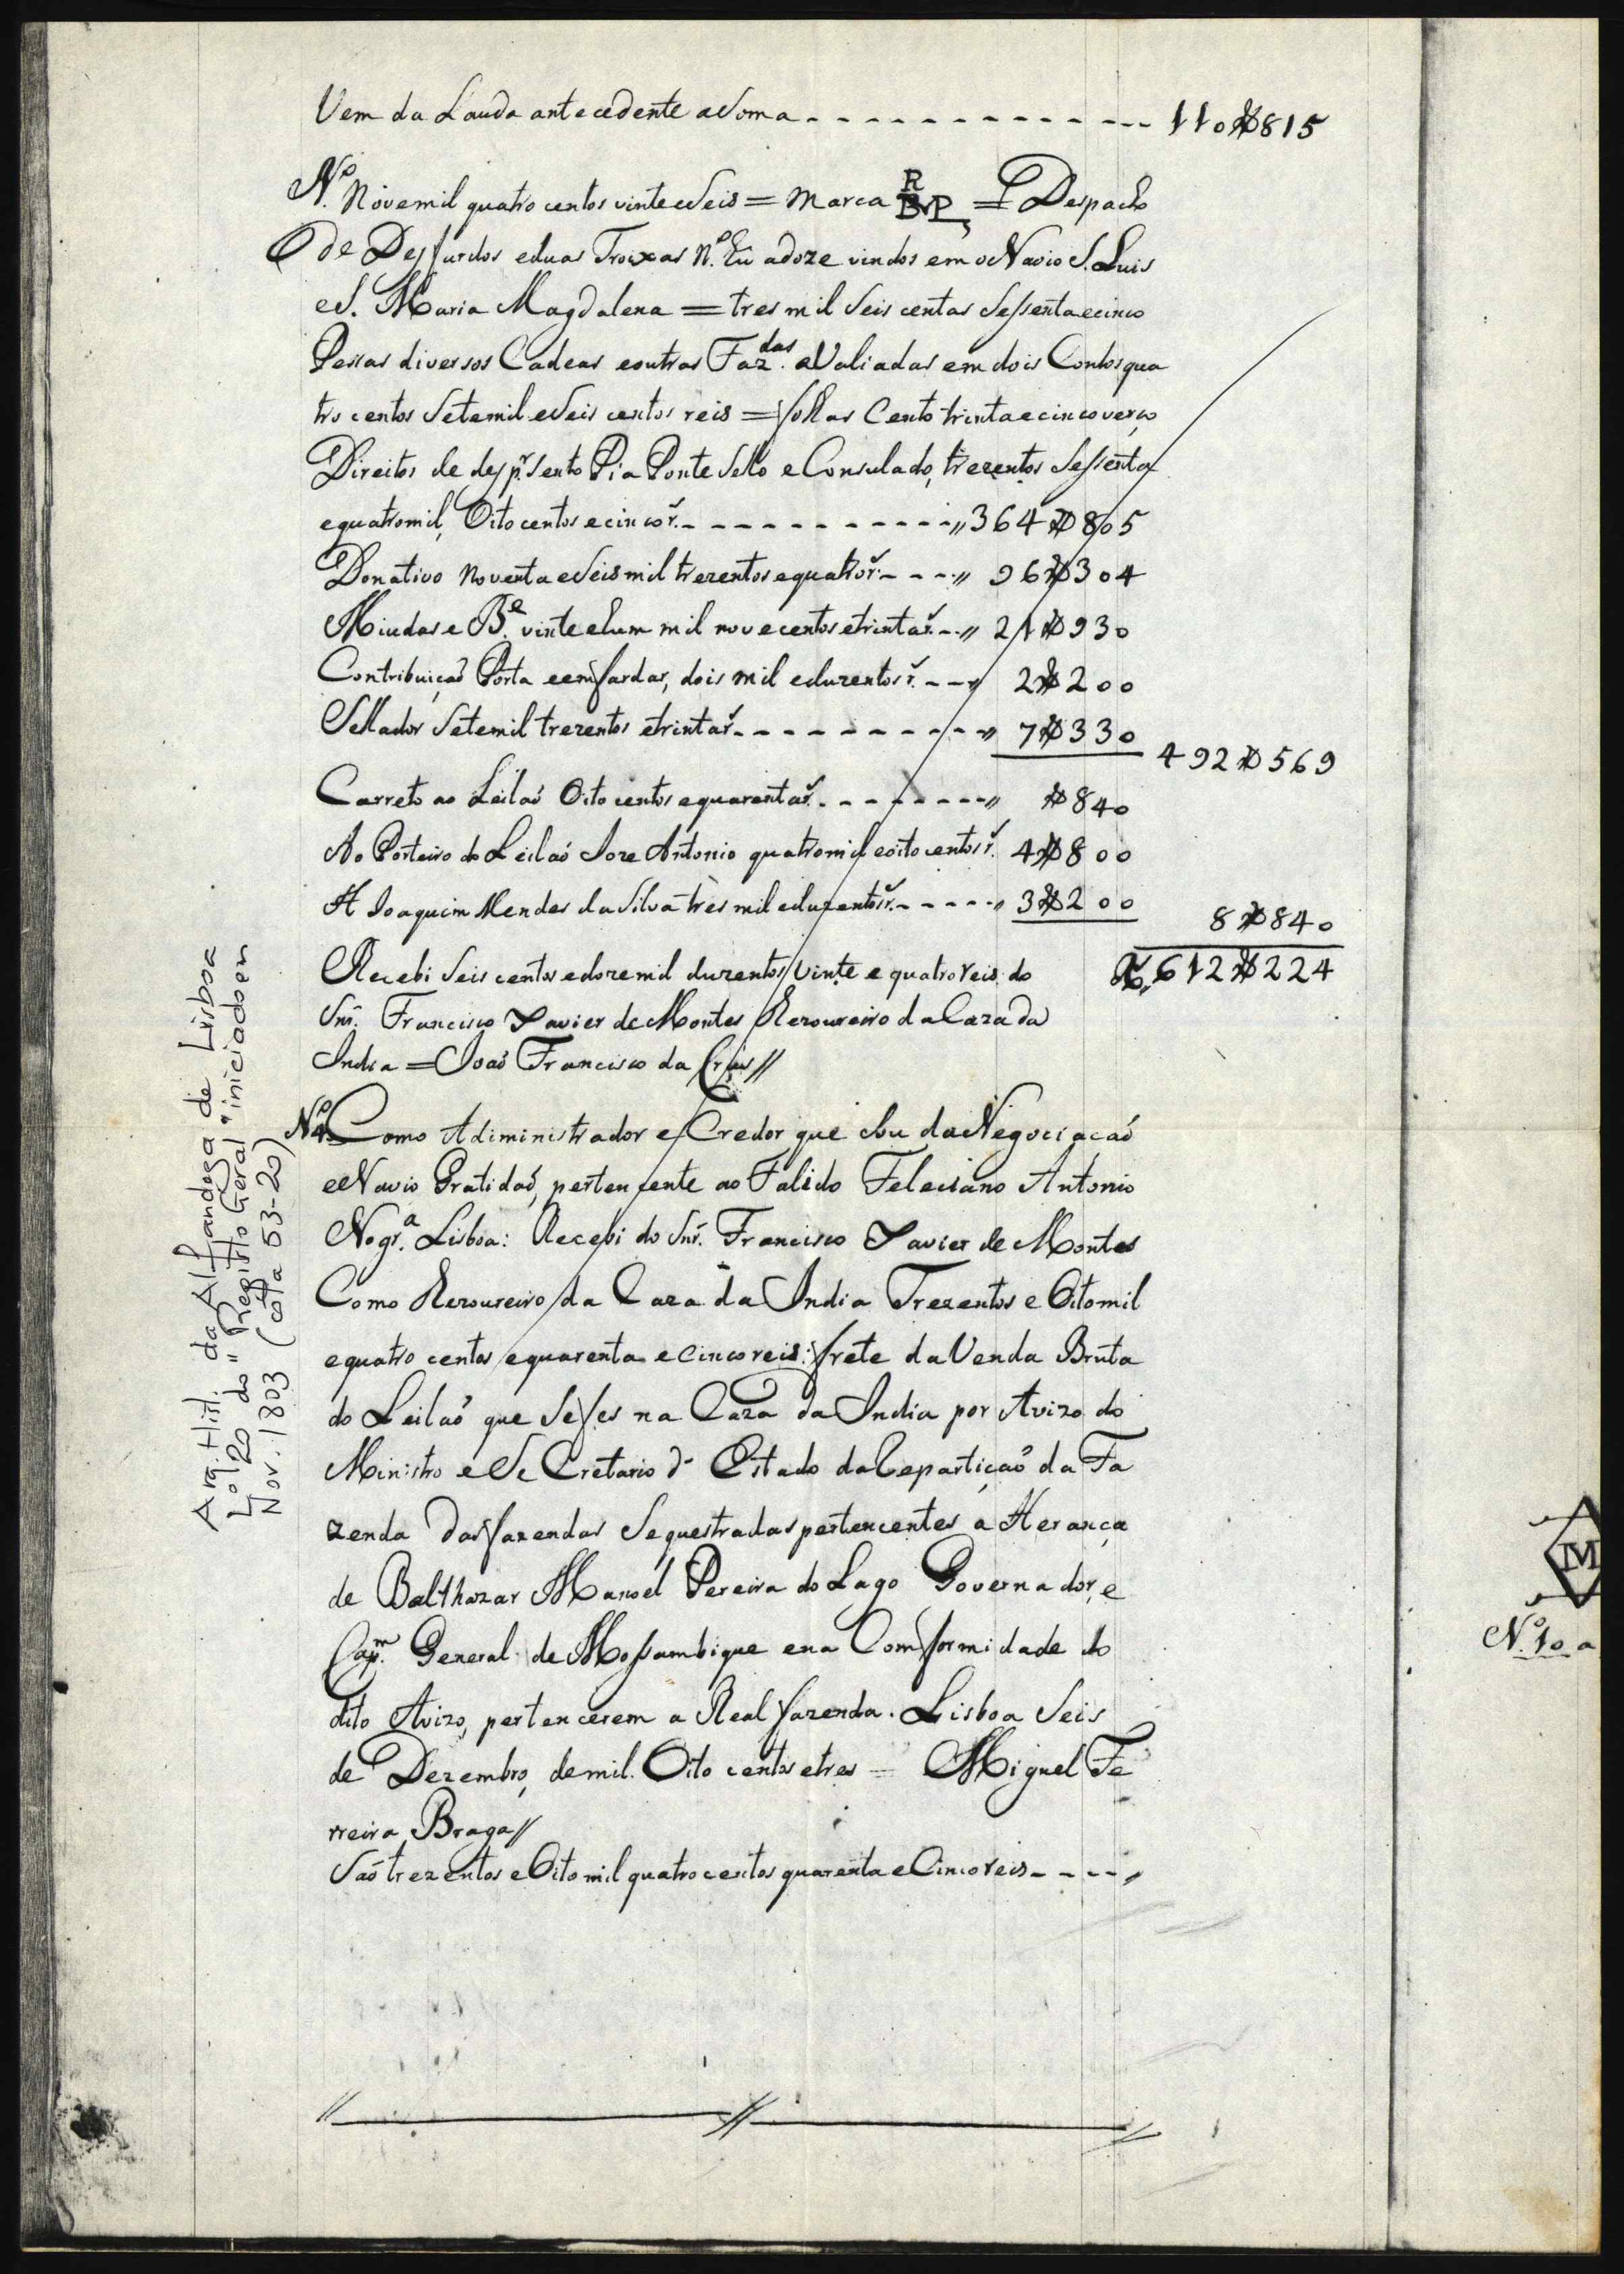 Vem da Lauda antecedente a Soma - - - - - - - - - - - - 110$815
Nº. Novemil quatro centos vinte e Seis = Marca R BVP = Despacho
de Des fardos e duas Troixas Nº. Hú a doze vindos em o Navio S. Luis
e S. Maria Magdalena = tres mil Seis centas Sessenta e cinco
Pessas diversos Cadeas e outras Faz.das aValiadas em dois Contos qua
tro centos Sete mil e Seis centos reis = folhas Cento trinta e cinco verço
Direitos de des p.r Sento Pia Ponte Sello e Consulado, trezentos Sessenta
e quatro mil, Oito centos e cinco r.s - - - - - - - - - - " 364$805
Donativo Noventa e Seis mil trezentos e quatro r.s - - - " 96$304
Miudas e B.e vinte e hum mil nove centos e trinta r.s - - " 21$930
Contribuiçaõ Porta e em fardar, dois mil e duzentos r.s - - " 2$200
Sellador Sete mil trezentos e trinta r.s - - - - - - - - - " 7$330
492$569
Carreto ao Leilaõ Oito centos e quarenta r.s - - - - - - - " $840
Ao Porteiro do Leilaõ Joze Antonio quatro mil e oito centos r.s 4$800
A Joaquim Mendes da Silva três mil e duzentos r.s - - - - " 3$200
8$840
Recebi Seis centos e doze mil duzentos vinte e quatro reis do
R.s 612$224
Snr. Francisco Xavier de Montes Thezoureiro da Caza da
India = Joaõ Francisco da Crus //
Nº 4 Como Adiministrador e Credor que Sou da Negociaçaõ
e Navio Gratidaõ, pertencente ao Falido Feleciano Antonio
Nogr.a Lisboa: Recebi do Snr. Francisco Xavier de Montes
Como Thezoureiro da Caza da India Trezentos e Oito mil
e quatro centos e quarenta e cinco reis: frete da Venda Bruta
do Leilaõ que Se fes na Caza da India por Avizo do
Ministro e Se Cretario d' Estado da Repartiçaõ da Fa
zenda das fazendas Sequestradas pertencentes a Herança
de Balthazar Manoel Pereira do Lago Governador, e
Cap.m General de Mossambique e na Com formidade do
dito Avizo, pertencerem a Real fazenda. Lisboa Seis
de Dezembro, de mil. Oito centos e tres = Miguel Fe
rreira Braga //
Saõ trezentos e Oito mil quatro centos quarenta e Cinco reis - - - - "
Arq. Hist. da Alfandega de Lisboa
L.º 20 do "Registo Geral" iniciado em
Nov. 1803 (cota 53-20)
M
Nº. 10 a